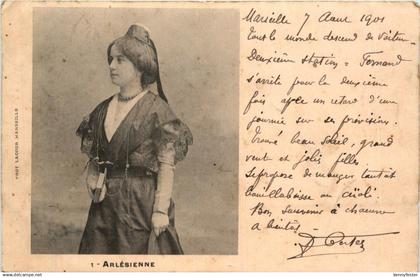 Marseille 7 Aout 1901
Tout le monde descend de voiture
Deuxième station = Fernand
s'arrête pour la deuxième
fois après un retard d'une
journée sur ses prévisions.
Trouvé beau soleil, grand
vent et jolis filles
se propose de manger tantôt
bouillabaisse ou aïoli.
Bon souvenir à chacun
a bientôt
PHOT LACOUR MARSEILLE
1 - ARLÉSIENNE